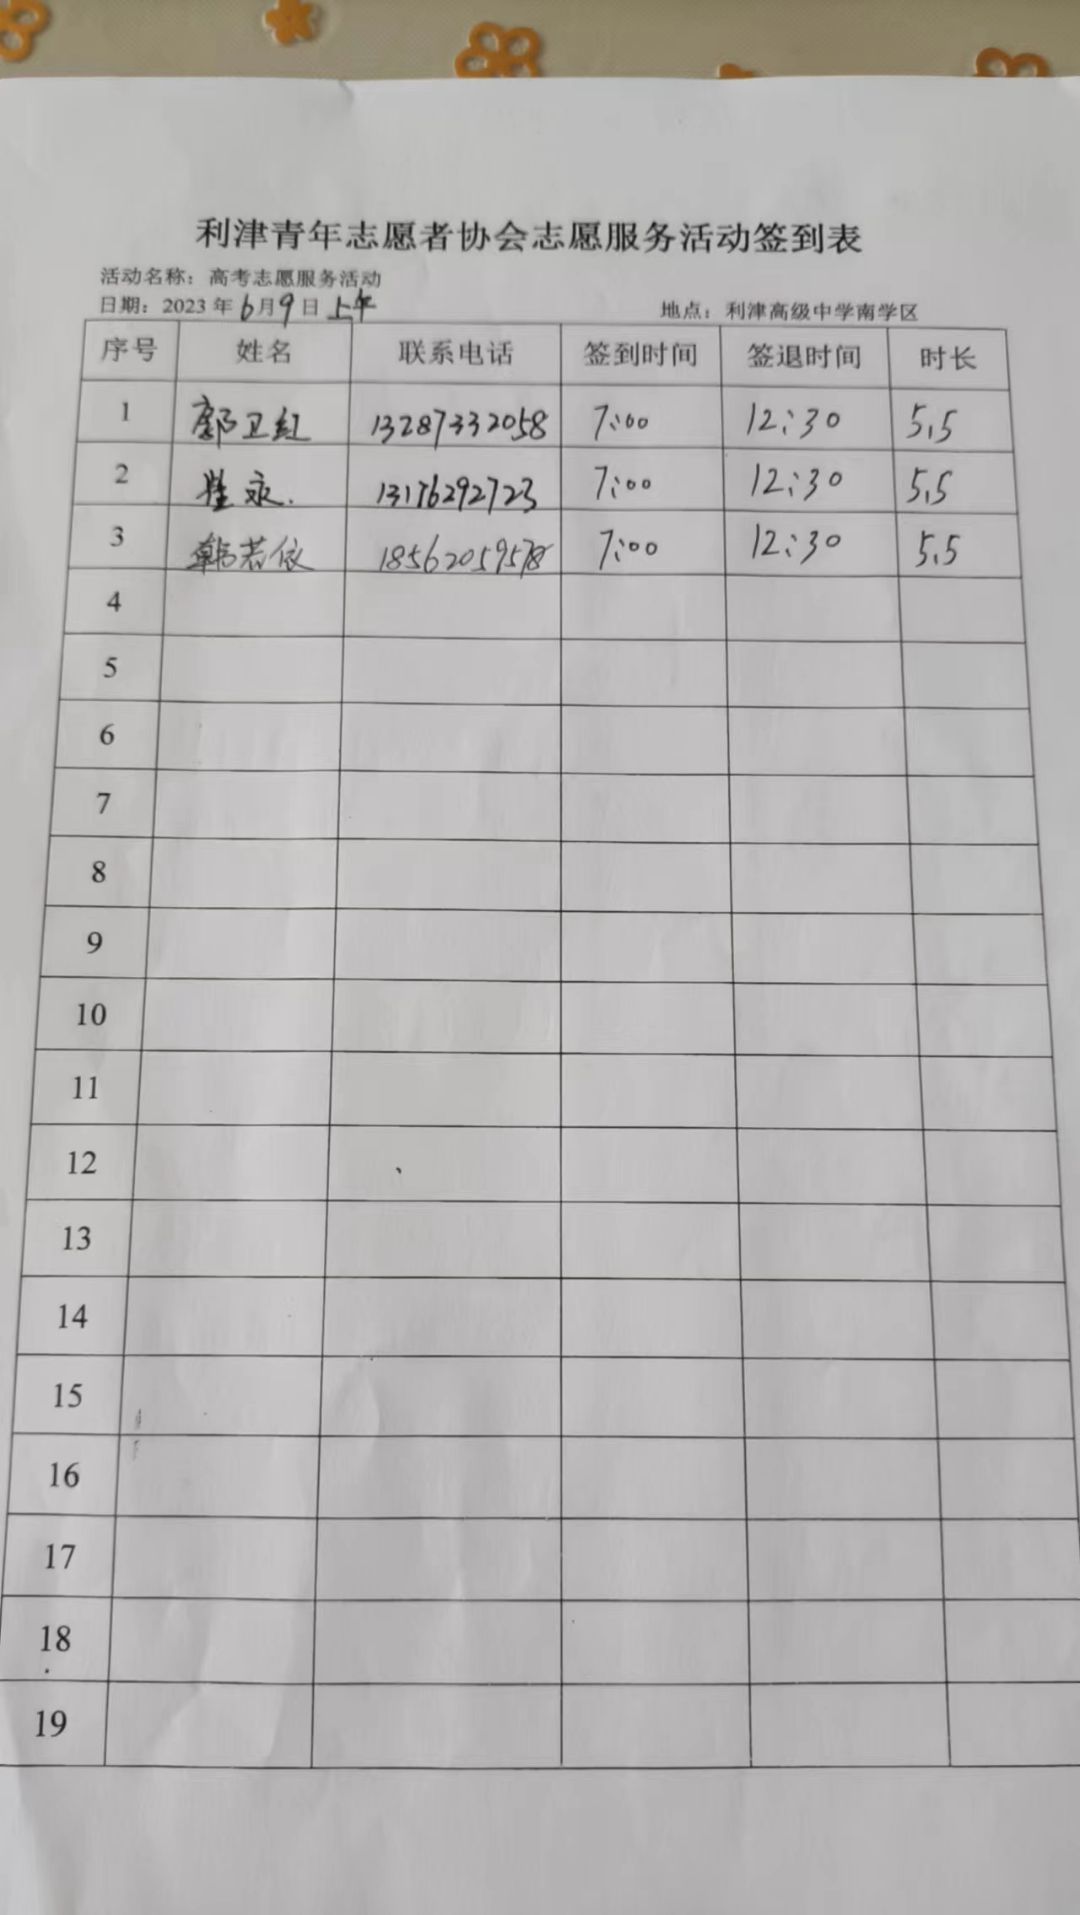 利津青年志愿者协会志愿服务活动签到表
活动名称：高考志愿服务活动
日期：2023年6月9日上午 地点：利津高级中学南学区
序号 姓名 联系电话 签到时间 签退时间 时长
1 郭卫红 13287332058 7:00 12:30 5.5
2 永. 13176292723 7:00 12:30 5.5
3 韩若依 18562059578 7:00 12:30 5.5
4
5
6
7
8
9
10
11
12
13
14
15
16
17
18
19